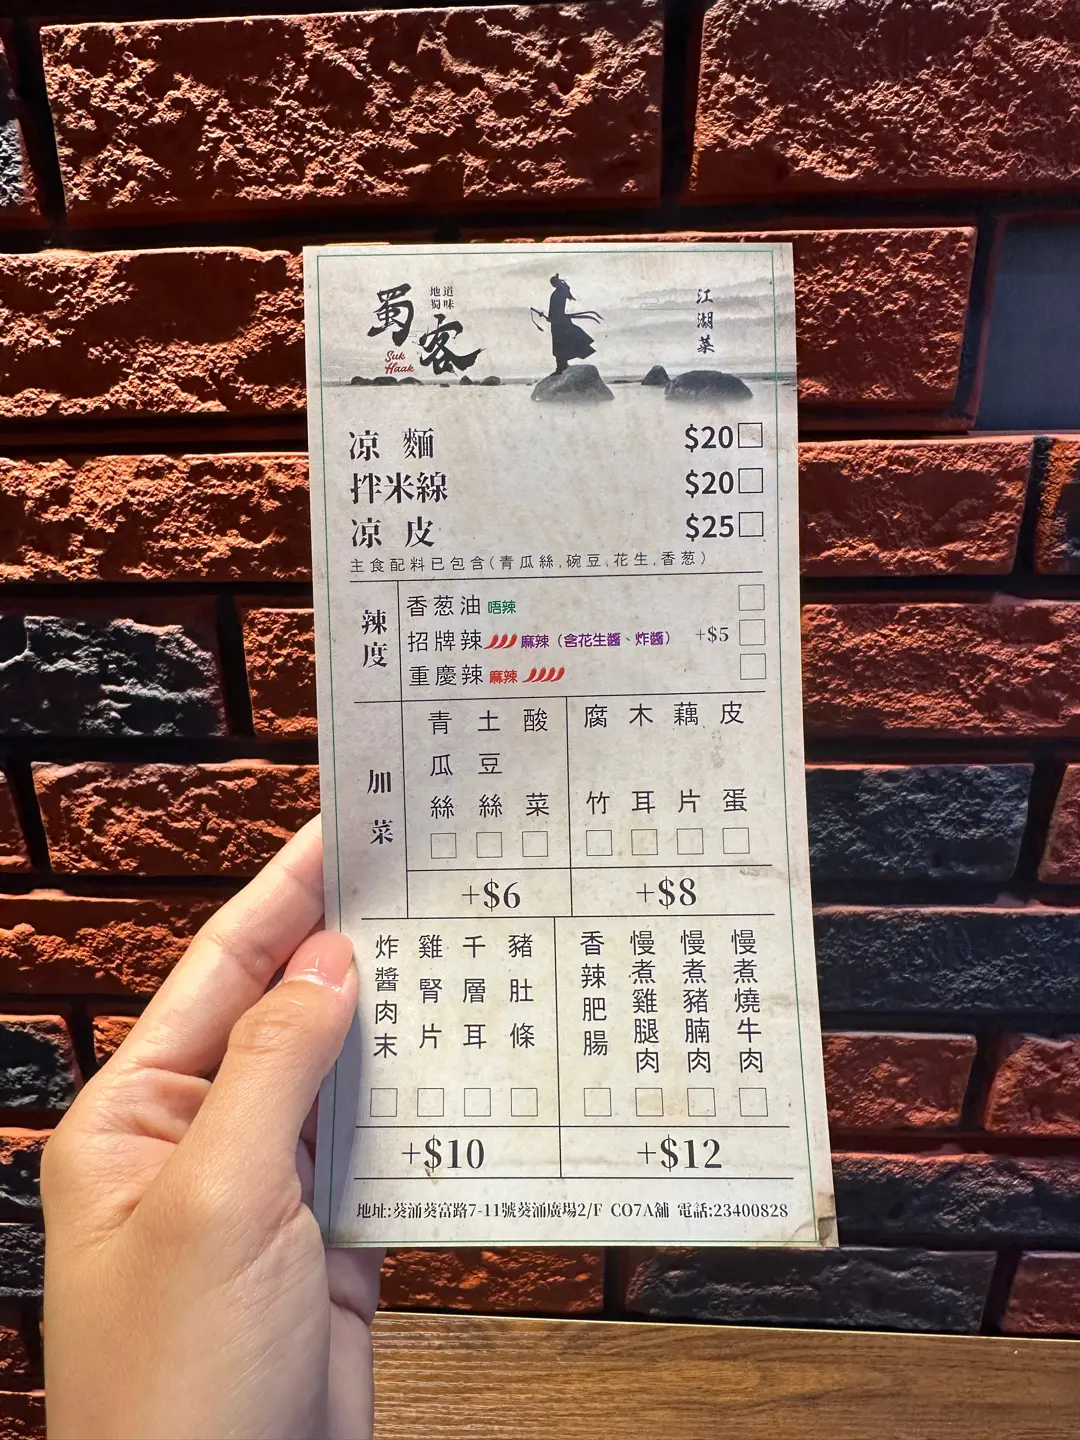 蜀客
地道
蜀味
Suk
Haak
江湖菜
凉麵 $20
拌米線 $20
凉皮 $25
主食配料已包含(青瓜絲,碗豆,花生,香葱)
辣度
香葱油 唔辣
招牌辣 麻辣（含花生醬、炸醬） +$5
重慶辣 麻辣
加菜
青瓜絲
土豆絲
酸菜
+$6
腐竹
木耳
藕片
皮蛋
+$8
炸醬肉末
雞腎片
千層耳
豬肚條
+$10
香辣肥腸
慢煮雞腿肉
慢煮豬腩肉
慢煮燒牛肉
+$12
地址:葵涌葵富路7-11號葵涌廣場2/F CO7A舖 電話:23400828